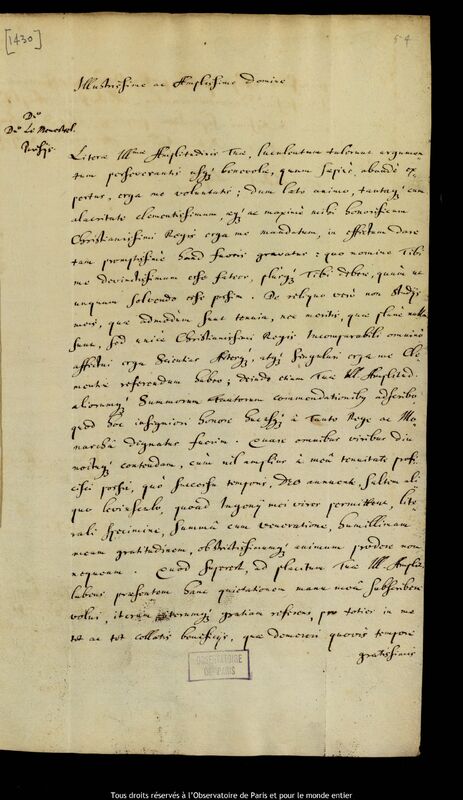 [1430]
54
Illustrissime ac Amplissime Domine
Dno
Dno Le Monostrol.
Parisijs.
Literæ Illmæ Amplitudinis Tuæ, luculentum tulerunt argumen-
tum perseverantis usq; benevolæ, quam sæpius, abundè ex-
pertus, erga me voluntatis; dum læto animo, tantaq; cum
alacritate clementissimum, æq; ac maximè mihi honorificum
Christianissimi Regis erga me mandatum, in effectum dare
tam promptissimè haud fueris gravatus: quo nomine Tibi
me devinctissimum esse fateor, pluraq; Tibi debere, quàm ut
unquam solvendo esse possim. De reliquo verò non studijs
meis, quæ admodum sunt tenuia, nec meritis, quæ planè nulla
sunt, sed unicè Christianissimi Regis Incomparabili omninò
affectui erga Scientias Artesq;, atq; singulari erga me Cle-
mentiæ referendum habeo; deindè etiam Tuæ Ill. Amplitud.
aliorumq; Summorum Fautorum commendationibus adscribo,
quod hoc insigniori honore hucusq; à Tanto Rege ac Mo-
narchâ dignatus fuerim. Quare omnibus viribus diu
noctuq; contendam, cùm nil amplius à meâ tenuitate prof-
icisci possit, quò successu temporis, DEO annuente, saltem ali-
quo levidensulo, quoad Ingenij mei vires permittent, lite-
rali specimine, summâ cum veneratione, humillimam
meam gratitudinem, obstrictissimumq; animum prodere non
nequeam. Quod superest, ad placitum Tuæ Ill. Amplit.
lubens præsentem hanc quietationem manu meâ subscribere
volui, iterum iterumq; gratiam referens, pro toties in me
tot ac tot collatis beneficijs, quæ demereri quovis tempore
gratissimis
OBSERVATOIRE
DE PARIS
Tous droits réservés à l'Observatoire de Paris et pour le monde entier